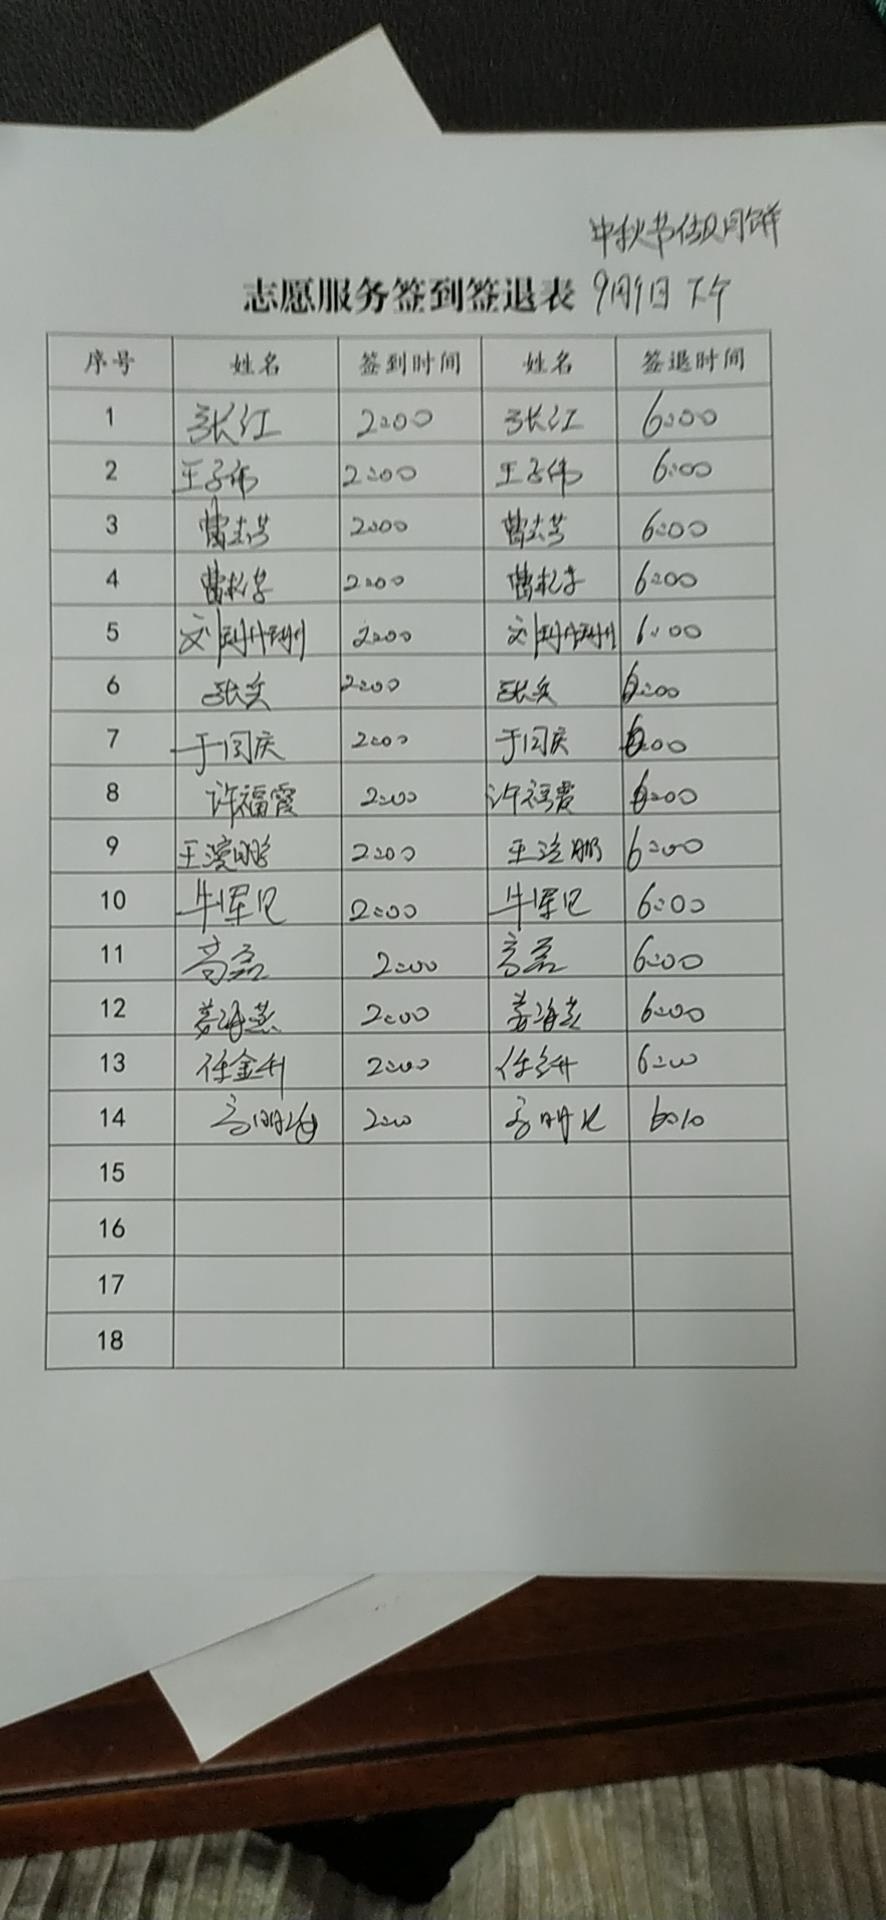 中秋节做月饼
志愿服务签到签退表 9月9日下午
序号 姓名 签到时间 姓名 签退时间
1 张江 2:00 张江 6:00
2 王子伟 2:00 王子伟 6:00
3 2:00 6:00
4 曹松学 2:00 曹松学 6:00
5 2:00 6:00
6 2:00 6:00
7 于闰庆 2:00 于闰庆 6:00
8 许福霞 2:00 许福霞 6:00
9 2:00 6:00
10 2:00 6:00
11 高磊 2:00 高磊 6:00
12 姜海燕 2:00 姜海燕 6:00
13 任金升 2:00 任金升 6:00
14 2:00 6:10
15
16
17
18